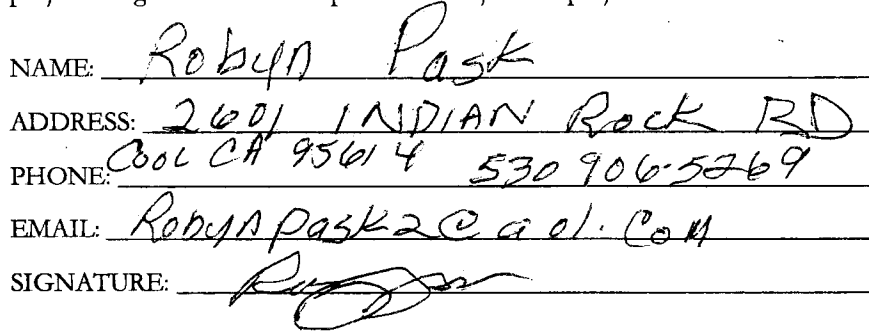 NAME: Robyn Pask
ADDRESS: 2601 INDIAN Rock RD
Cool CA 95614 530 906-5269
PHONE:
EMAIL: Robynpask2@aol.com
SIGNATURE: